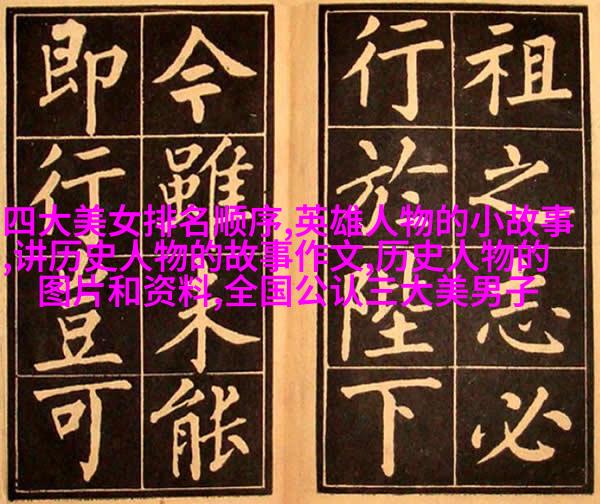 祖之志必
行於陛下
今雖未能
即行豈可
四大美女排名顺序,英雄人物的小故事
,讲历史人物的故事作文,历史人物的
图片和资料,全国公认三大美男子